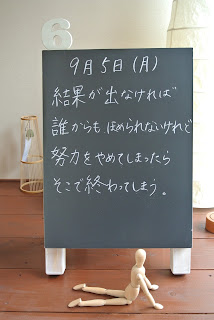 6
9月5日(月)
結果が出なければ
誰からもほめられないけれど
努力をやめてしまったら
そこで終わってしまう。